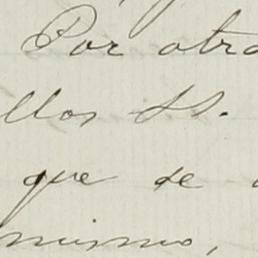 Por otra
llos SS.
que se
mismo,